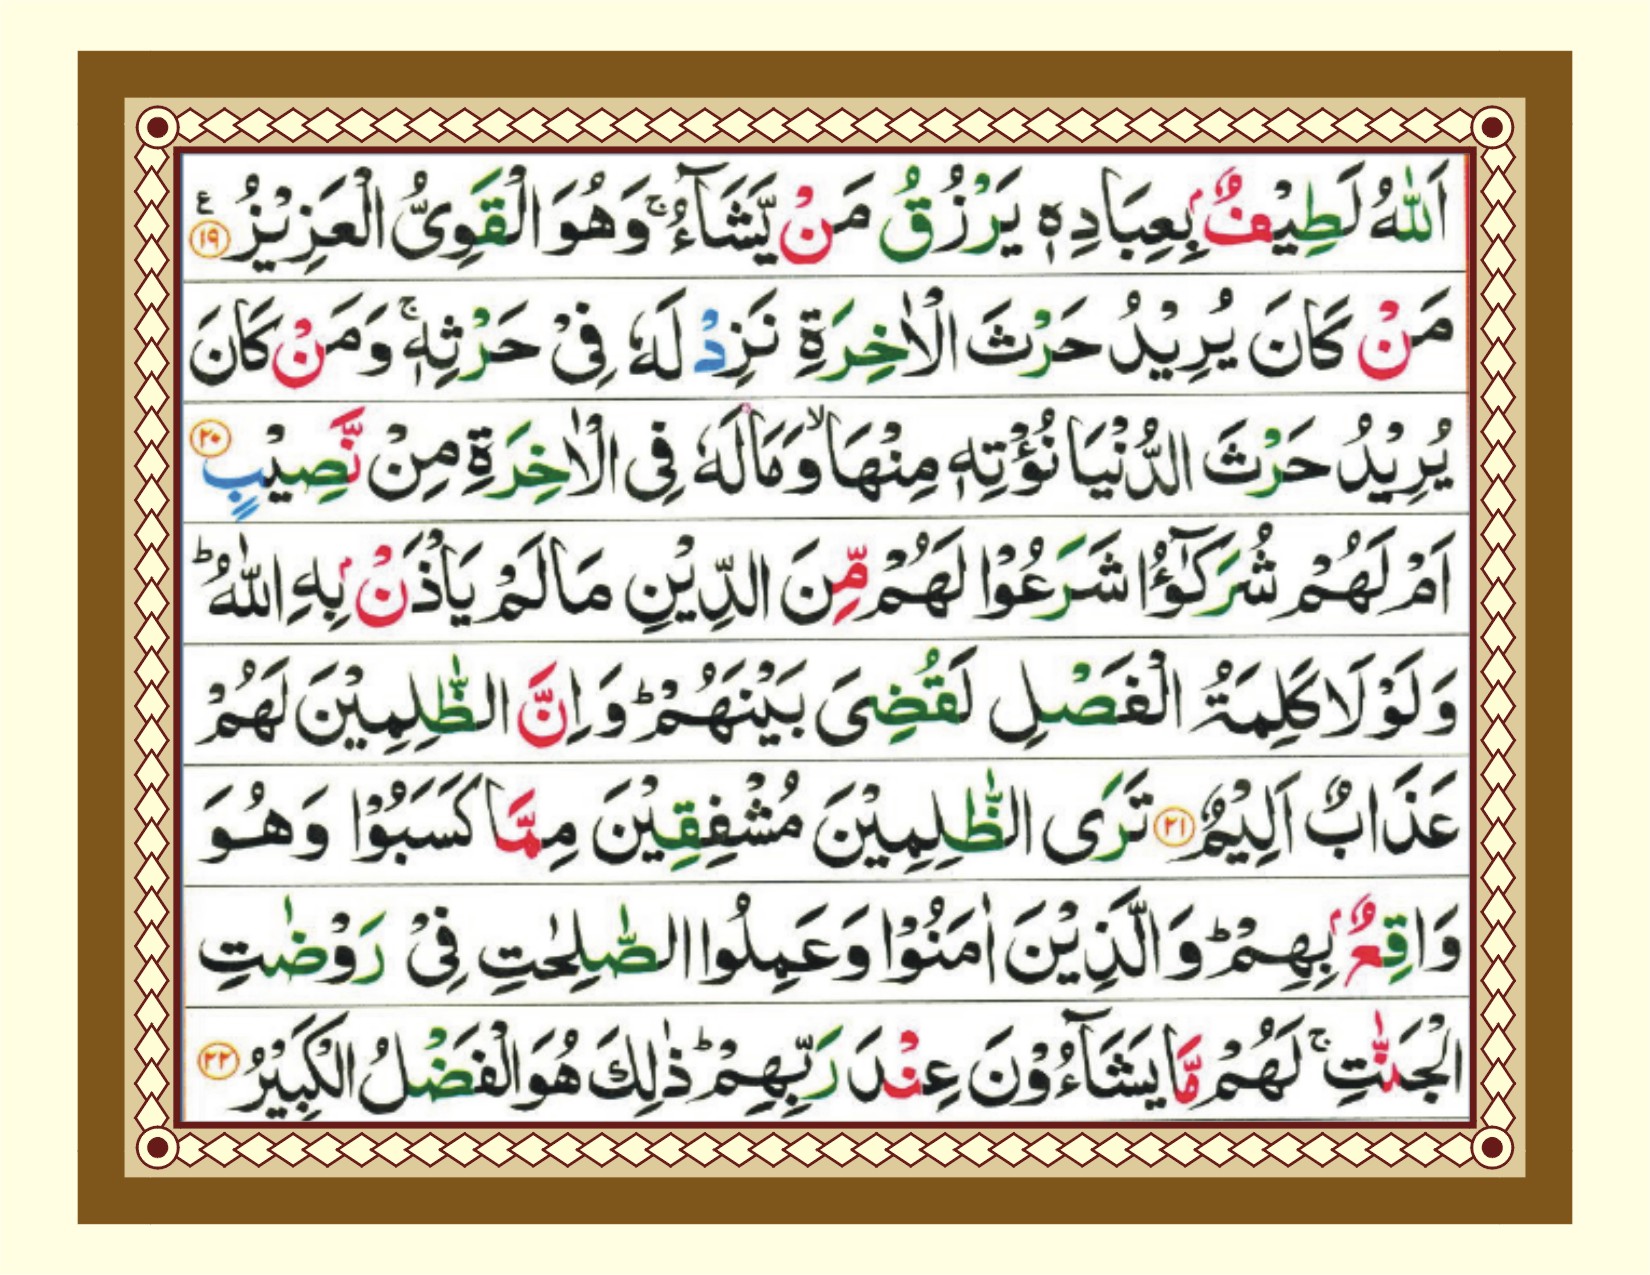 اَللّٰهُ لَطِيْفٌۢ بِعِبَادِهٖ يَرْزُقُ مَنْ يَّشَآءُ ۚ وَهُوَ الْقَوِىُّ الْعَزِيْزُ ع ﴿۱۹﴾
مَنْ كَانَ يُرِيْدُ حَرْثَ الْاٰخِرَةِ نَزِدْ لَهٗ فِىْ حَرْثِهٖ ۚ وَمَنْ كَانَ
يُرِيْدُ حَرْثَ الدُّنْيَا نُؤْتِهٖ مِنْهَا ۙ وَمَا لَهٗ فِى الْاٰخِرَةِ مِنْ نَّصِيْبٍ ﴿۲۰﴾
اَمْ لَهُمْ شُرَكٰٓؤُا شَرَعُوْا لَهُمْ مِّنَ الدِّيْنِ مَا لَمْ يَاْذَنْۢ بِهِ اللّٰهُ ؕ
وَلَوْلَا كَلِمَةُ الْفَصْلِ لَقُضِىَ بَيْنَهُمْ ؕ وَاِنَّ الظّٰلِمِيْنَ لَهُمْ
عَذَابٌ اَلِيْمٌ ﴿۲۱﴾ تَرَى الظّٰلِمِيْنَ مُشْفِقِيْنَ مِمَّا كَسَبُوْا وَهُوَ
وَاقِعٌۢ بِهِمْ ؕ وَالَّذِيْنَ اٰمَنُوْا وَعَمِلُوا الصّٰلِحٰتِ فِىْ رَوْضٰتِ
الْجَنّٰتِ ۚ لَهُمْ مَّا يَشَآءُوْنَ عِنْدَ رَبِّهِمْ ؕ ذٰلِكَ هُوَ الْفَضْلُ الْكَبِيْرُ ﴿۲۲﴾